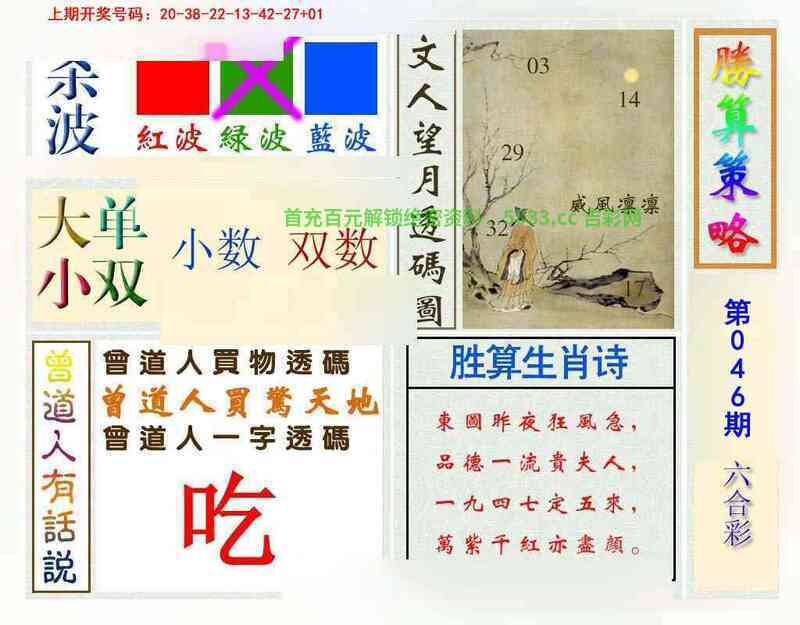 上期开奖号码：20-38-22-13-42-27+01
杀波
紅波 緑波 藍波
大单
小双
小数 双数
文人望月透碼圖
03
14
29
威風凛凛
32
17
勝算策略
第046期
六合彩
曾道人有話説
曾道人買物透碼
曾道人買驚天地
曾道人一字透碼
吃
胜算生肖诗
東圖昨夜狂風急，
品德一流貴夫人，
一九四七定五來，
萬紫千紅亦盡顔。